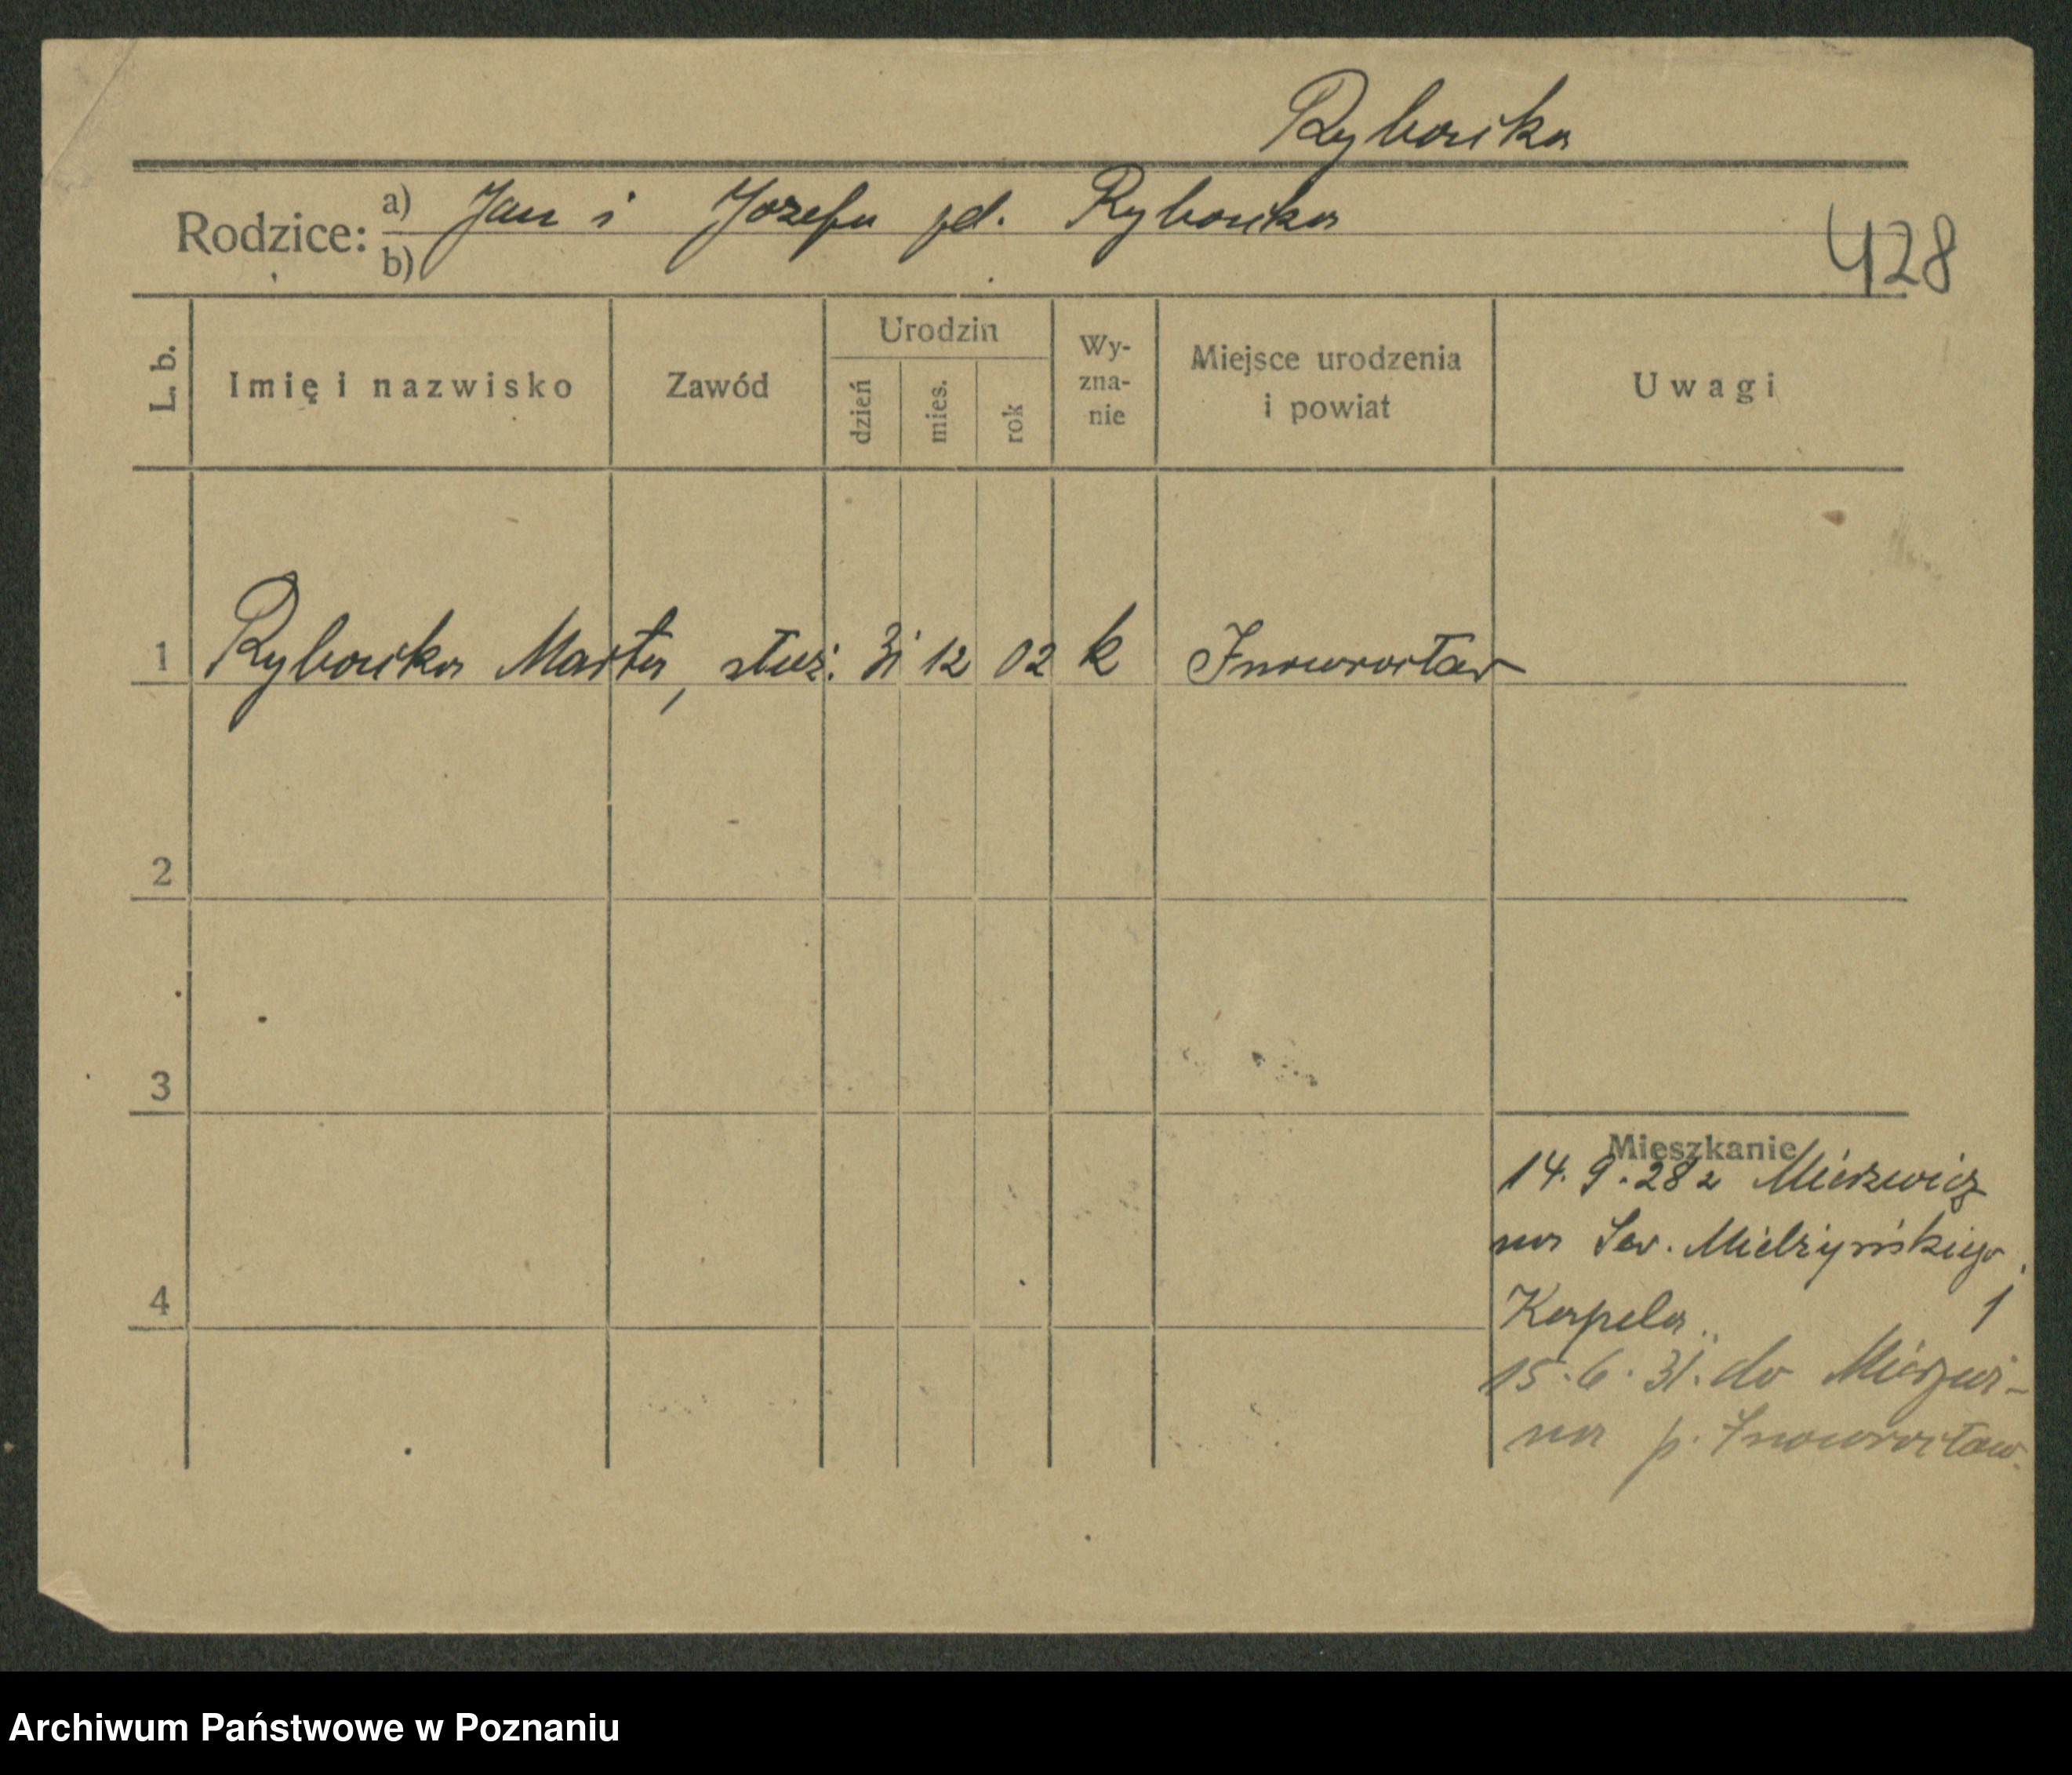 Rybarska
Rodzice: a) Jan i Jozefa pd. Rybarska
b)
428
L. b. Imię i nazwisko Zawód Urodzin dzień mies. rok Wy-zna-nie Miejsce urodzenia i powiat Uwagi
1 Rybarska Marta, służ. 31 12 02 k Inowrocław
2
3
4
Mieszkanie
14.9.28 z Mierzwicz
na Sew. Mielżyńskiego
Karpela 1
15.6.31. do Mierzwi-
na p. Inowrocław.
Archiwum Państwowe w Poznaniu